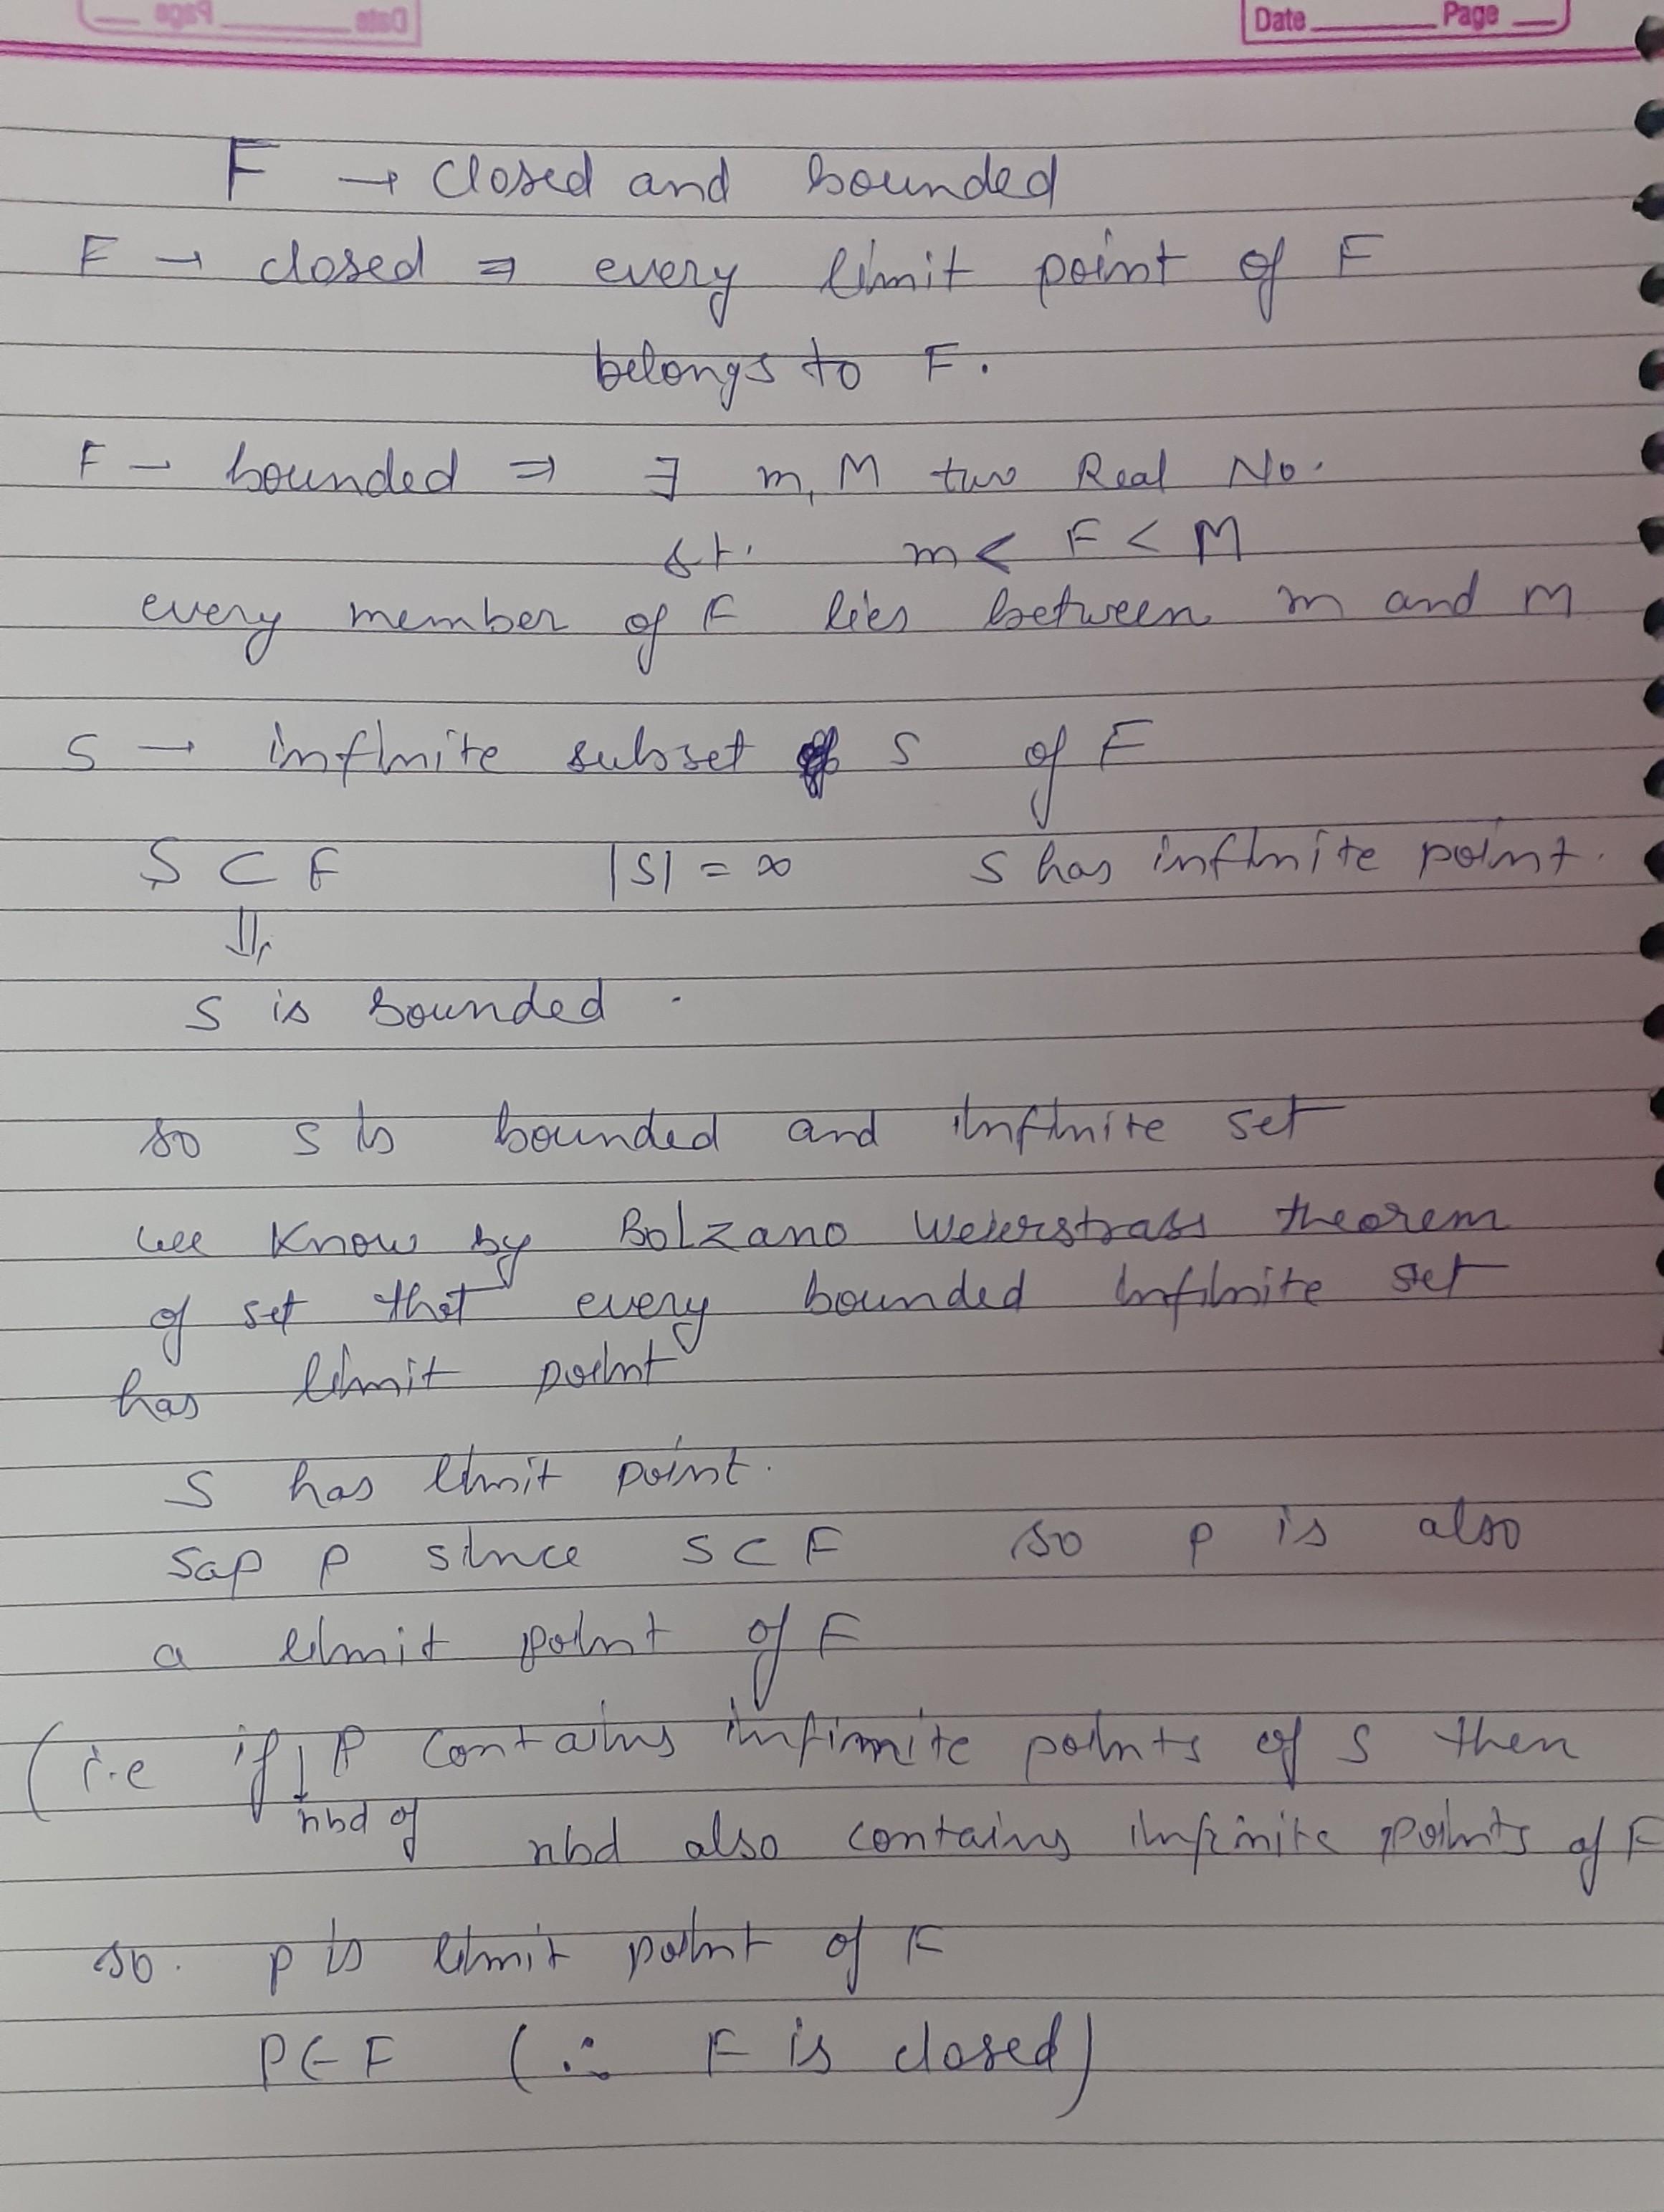 Date Page
F → closed and bounded
F → closed ⇒ every limit point of F
belongs to F.
F → bounded ⇒ ∃ m, M two Real No.
st. m < F < M
every member of F lies between m and M
S → infinite subset S of F
S ⊂ F |S| = ∞ S has infinite point.
⇓
S is bounded.
so S is bounded and infinite set
we know by Bolzano Weierstrass theorem
of set that every bounded infinite set
has limit point
S has limit point.
Sap P since S ⊂ F so P is also
a limit point of F
(i.e if ↓ P contains infinite points of S then
nbd of nbd also contains infinite points of F
so. P is limit point of F
P ∈ F (∴ F is closed)